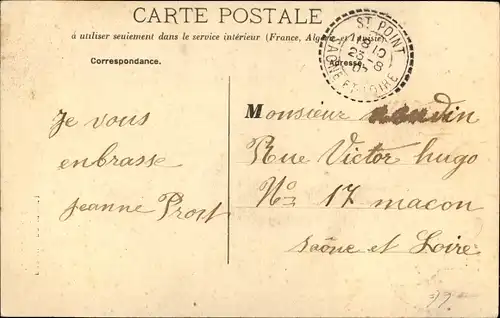 CARTE POSTALE
à utiliser seulement dans le service intérieur (France, Algérie et Tunisie).
Correspondance.
Adresse.
ST POINT
8 10
23 -8
07
SAONE ET LOIRE
Je vous
enbrasse
jeanne Prost
Monsieur
Rue Victor hugo
No 17 macon
saône et Loire